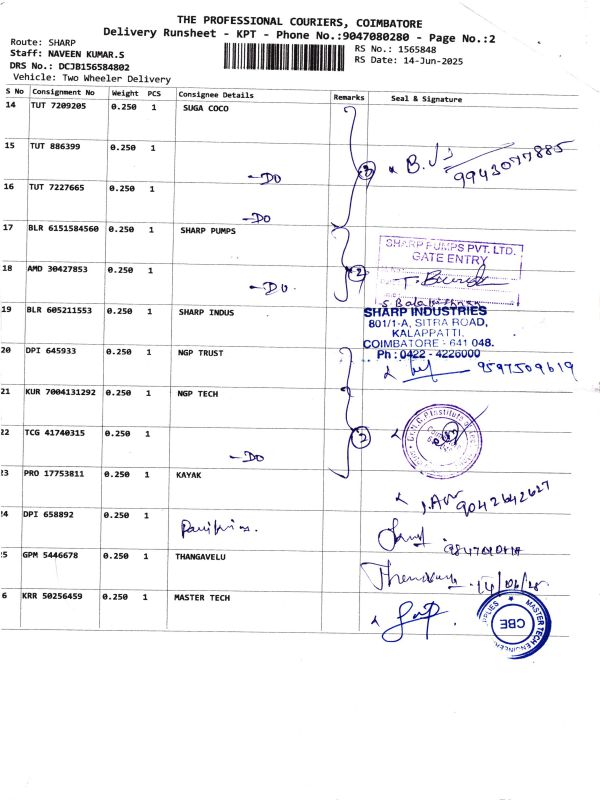 THE PROFESSIONAL COURIERS, COIMBATORE
Delivery Runsheet - KPT - Phone No.:9047080280 - Page No.:2
Route: SHARP
RS No.: 1565848
Staff: NAVEEN KUMAR.S
RS Date: 14-Jun-2025
DRS No.: DCJB156584802
Vehicle: Two Wheeler Delivery
S No Consignment No Weight PCS Consignee Details Remarks Seal & Signature
14 TUT 7209205 0.250 1 SUGA COCO
15 TUT 886399 0.250 1 -DO 3 B. 9943077885
16 TUT 7227665 0.250 1 -DO
17 BLR 6151584560 0.250 1 SHARP PUMPS
SHARP PUMPS PVT. LTD.
GATE ENTRY
18 AMD 30427853 0.250 1 -DO 2
19 BLR 605211553 0.250 1 SHARP INDUS
SHARP INDUSTRIES
801/1-A, SITRA ROAD,
KALAPPATTI,
COIMBATORE - 641 048.
Ph : 0422 - 4226000
20 DPI 645933 0.250 1 NGP TRUST 9597509619
21 KUR 7004131292 0.250 1 NGP TECH
22 TCG 41740315 0.250 1 -DO
23 PRO 17753811 0.250 1 KAYAK 9042642627
24 DPI 658892 0.250 1
25 GPM 5446678 0.250 1 THANGAVELU 14/06/25
6 KRR 50256459 0.250 1 MASTER TECH
MASTER TECH ENGINEER
CBE